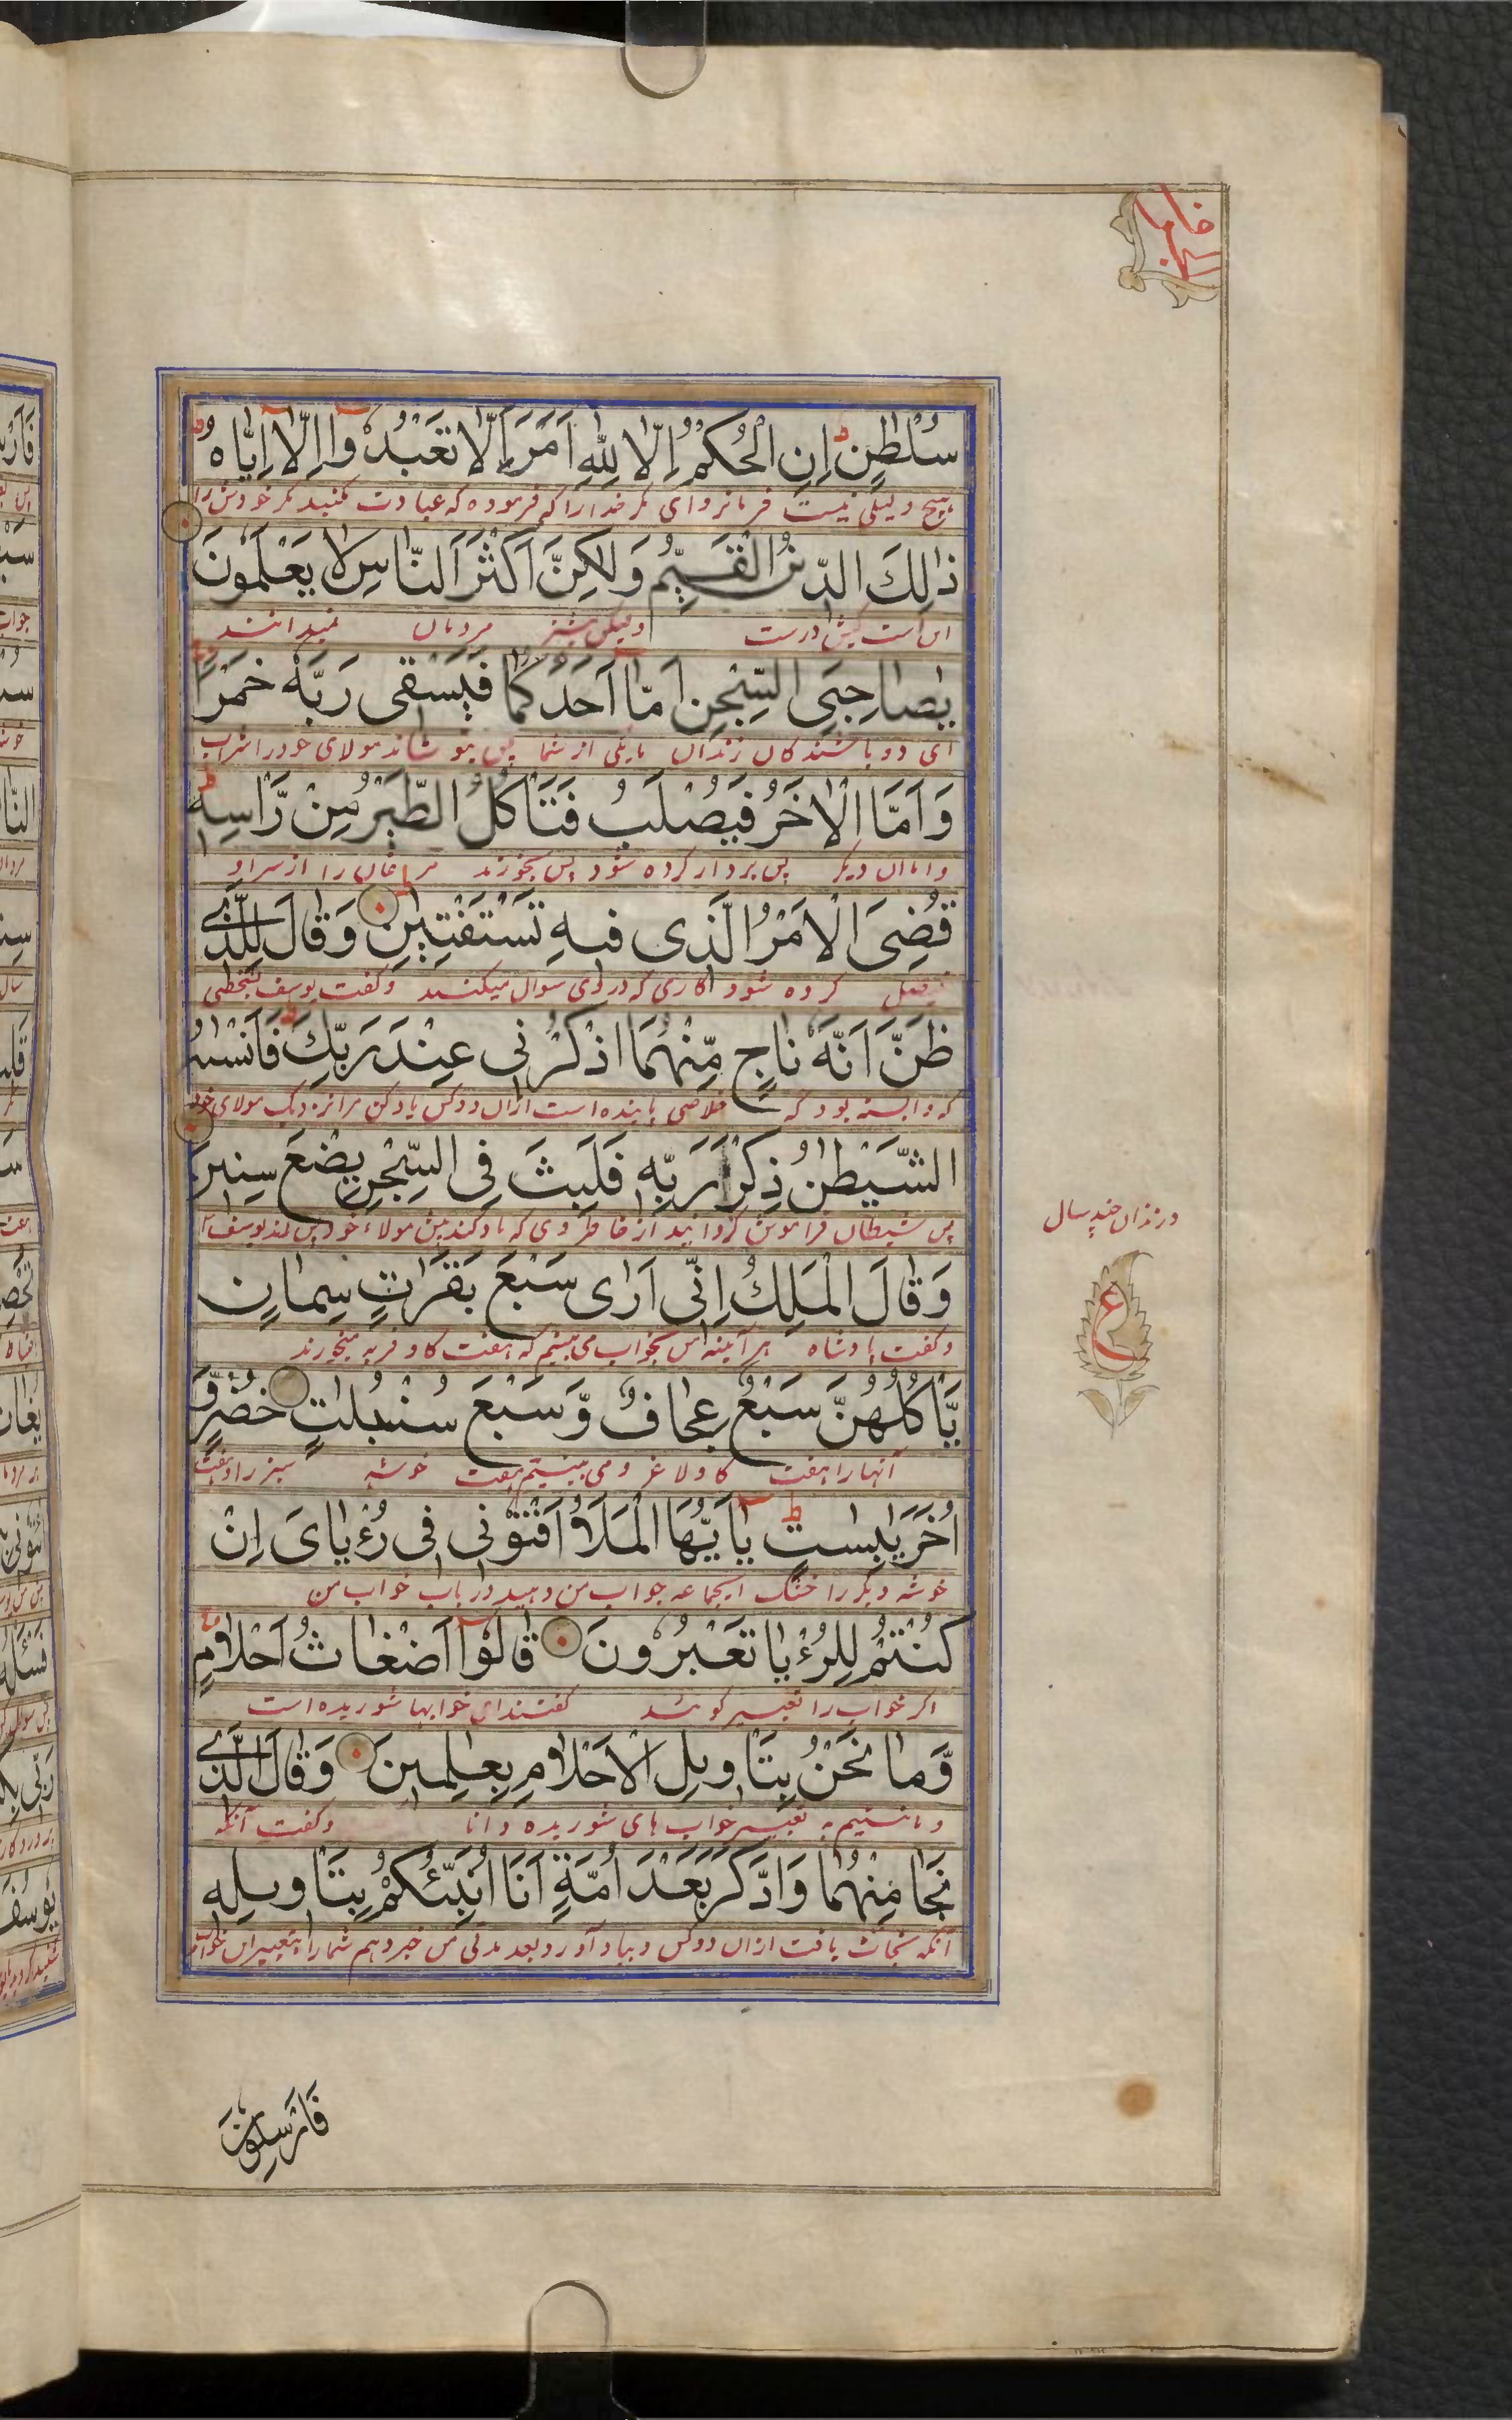 سُلْطٰنٍ اِنِ الْحُكْمُ اِلَّا لِلّٰهِ اَمَرَ اَلَّا تَعْبُدُوْا اِلَّا اِيَّاهُ
هیچ دلیلی نیست فرمانروای مکر خدا را که فرموده که عبادت مکنید مکر خودش را
ذٰلِكَ الدِّيْنُ الْقَيِّمُ وَلٰكِنَّ اَكْثَرَ النَّاسِ لَا يَعْلَمُوْنَ
این است کیش درست ولیکن بیشتر مردمان نمیدانند
يٰصَاحِبَيِ السِّجْنِ اَمَّا اَحَدُكُمَا فَيَسْقِى رَبَّهٗ خَمْرًا
ای دو باشندکان زندان یکی از شما پس بنوشاند مولای خود را شراب
وَاَمَّا الْاٰخَرُ فَيُصْلَبُ فَتَاْكُلُ الطَّيْرُ مِنْ رَّاْسِهٖ
و اما ان دیکر پس بردار کرده شود پس بخورند مرغان را از سر او
قُضِىَ الْاَمْرُ الَّذِى فِيْهِ تَسْتَفْتِيٰنِ وَقَالَ لِلَّذِىْ
کرده شود کاری که در وی سوال میکنید و کفت یوسف
ظَنَّ اَنَّهٗ نَاجٍ مِّنْهُمَا اذْكُرْنِى عِنْدَ رَبِّكَ فَاَنْسٰىهُ
که دانسته بود که خلاصی یابنده است ازان دو کس یاد کن مرا نزدیک مولای خود
الشَّيْطٰنُ ذِكْرَ رَبِّهٖ فَلَبِثَ فِى السِّجْنِ بِضْعَ سِنِيْنَ
پس شیطان فراموش کردانید از خاطر وی که یاد کند پیش مولاء خود پس ماند یوسف
در زندان چند سال
ع
وَقَالَ الْمَلِكُ اِنِّى اَرٰى سَبْعَ بَقَرٰتٍ سِمَانٍ
و کفت پادشاه هر آینه من بخواب می بینم که هفت کاو فربه میخورند
يَّاْكُلُهُنَّ سَبْعٌ عِجَافٌ وَّسَبْعَ سُنْۢبُلٰتٍ خُضْرٍ وَّ
آنها را هفت کاو لاغر و می بینم هفت خوشه سبز را و هفت
اُخَرَ يٰبِسٰتٍ يٰاَيُّهَا الْمَلَاُ اَفْتُوْنِى فِى رُءْيَاىَ اِنْ
خوشه دیکر را خشک ای جماعه جواب من دهید در باب خواب من
كُنْتُمْ لِلرُّءْيَا تَعْبُرُوْنَ قَالُوْا اَضْغَاثُ اَحْلَامٍ
اکر خواب را تعبیر کو شد کفتند ای خوابها شوریده است
وَّمَا نَحْنُ بِتَاْوِيْلِ الْاَحْلَامِ بِعٰلِمِيْنَ وَقَالَ الَّذِىْ
و ما نیستیم به تعبیر خواب های شوریده دانا و کفت آنکه
نَجَا مِنْهُمَا وَادَّكَرَ بَعْدَ اُمَّةٍ اَنَا اُنَبِّئُكُمْ بِتَاْوِيْلِهٖ
آنکه نجات یافت ازان دو کس و بیاد آورد بعد مدتی من خبر دهم شما را بتعبیر این خواب
فَاَرْسِلُوْنِ